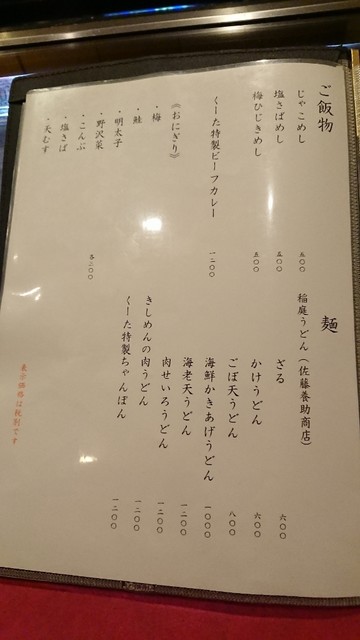 ご飯物
じゃこめし 五〇〇
塩さばめし 五〇〇
梅ひじきめし 五〇〇
くーた特製ビーフカレー 一二〇〇
《おにぎり》
・梅
・鮭
・明太子
・野沢菜
・こんぶ
・塩さば
・天むす
各二〇〇
麺
稲庭うどん(佐藤養助商店)
ざる 六〇〇
かけうどん 六〇〇
ごぼ天うどん 八〇〇
海鮮かきあげうどん 一〇〇〇
海老天うどん 一二〇〇
肉せいろうどん 一二〇〇
きしめんの肉うどん 一二〇〇
くーた特製ちゃんぽん 一二〇〇
表示価格は税別です